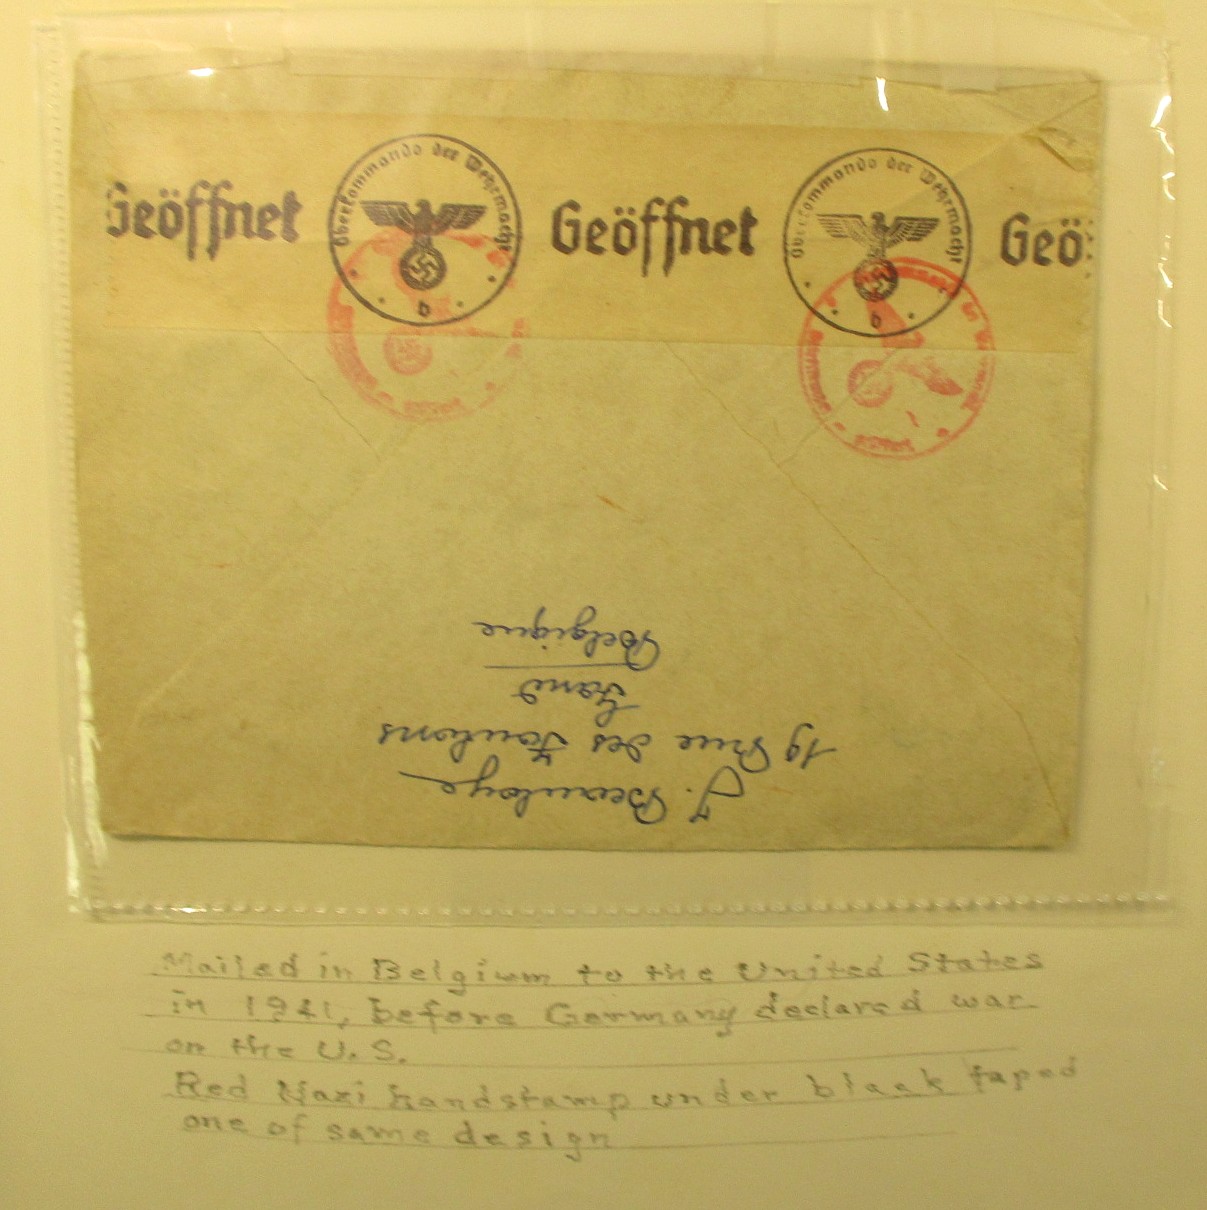 Geöffnet
Oberkommando der Wehrmacht
b
Geöffnet
Oberkommando der Wehrmacht
b
Geö
J.
19 Rue des
Belgique
Mailed in Belgium to the United States
in 1941, before Germany declared war
on the U.S.
Red Nazi handstamp under black taped
one of same design